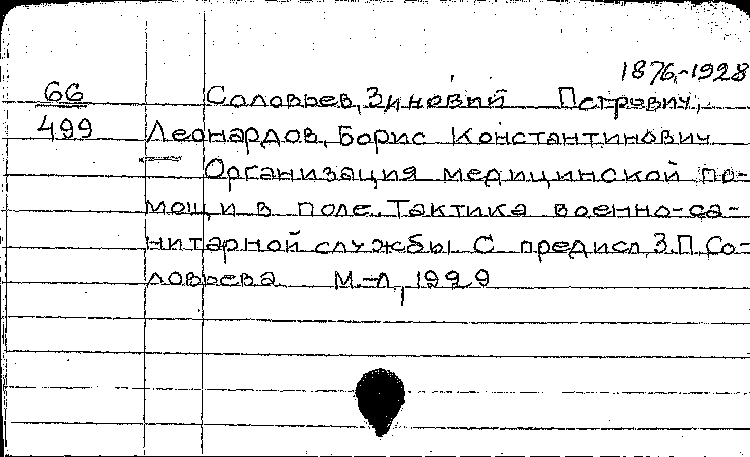 1876-1928
66 Соловьев, Зиновий Петрович,
499 Леонардов, Борис Константинович
Организация медицинской по-
мощи в поле. Тактика военно-са-
нитарной службы. С предисл. З.П. Со-
ловьева М.-Л., 1929